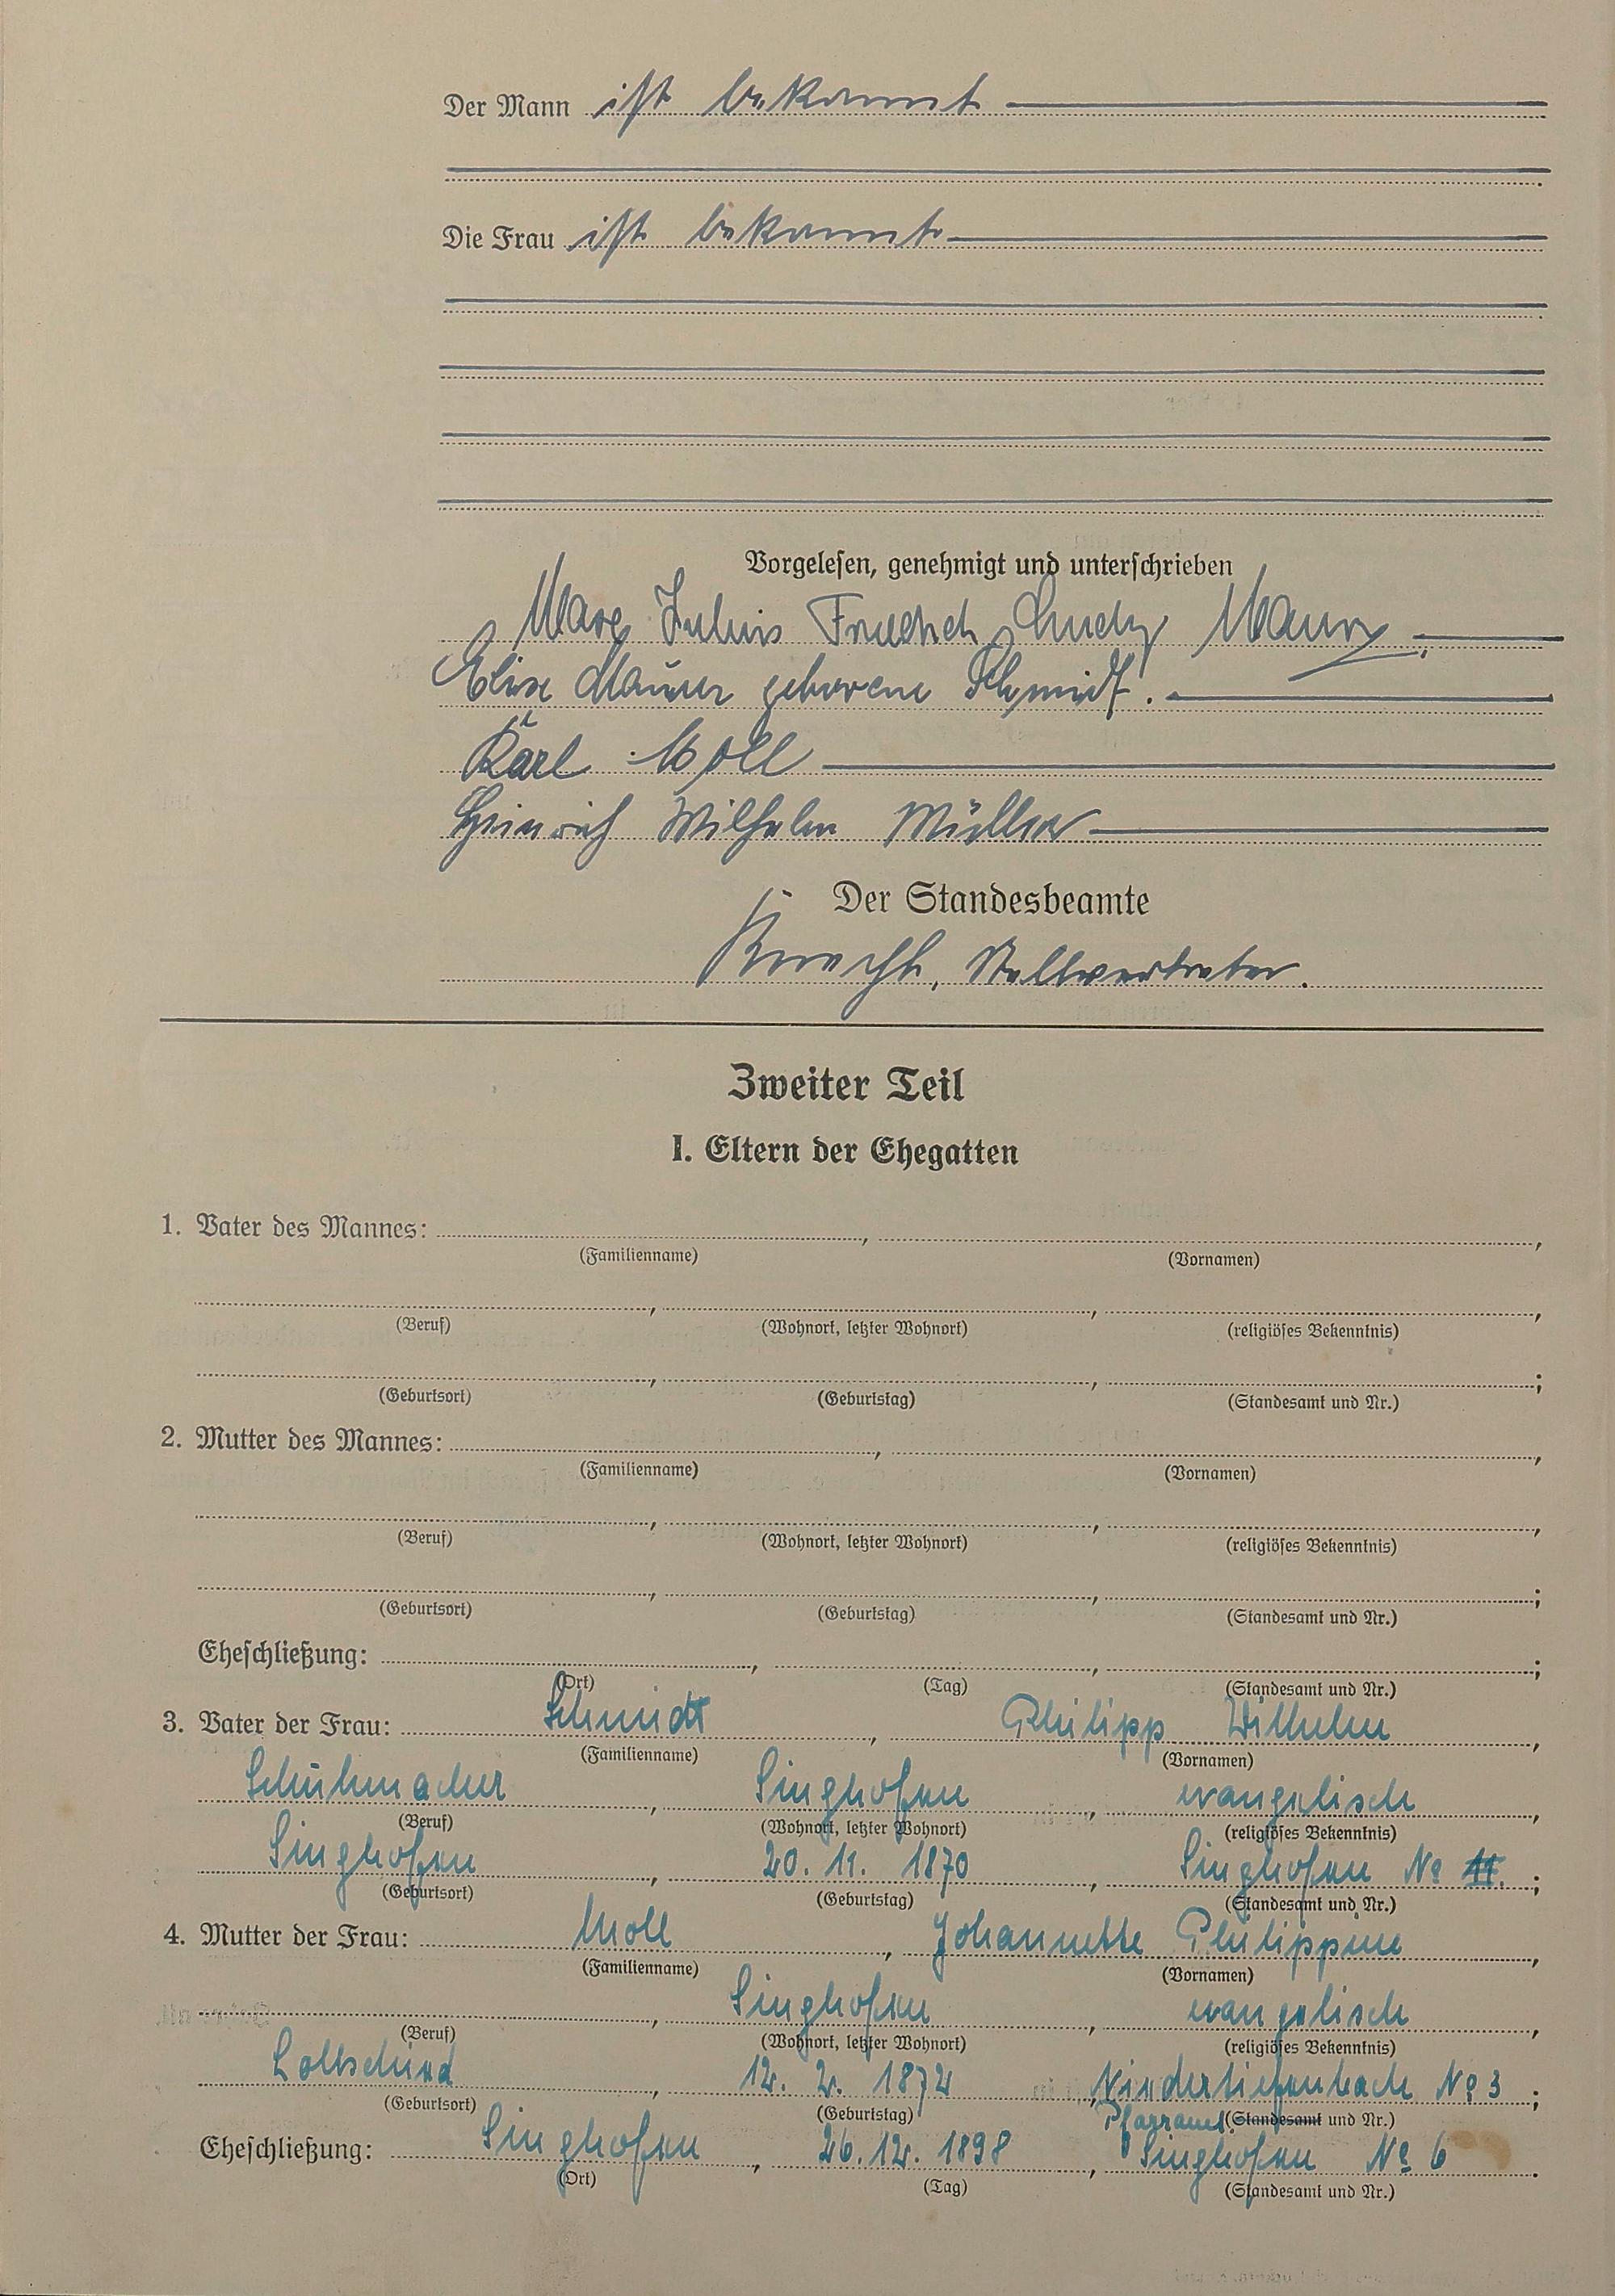 Der Mann ist bekannt
Die Frau ist bekannt
Vorgelesen, genehmigt und unterschrieben
Max Julius Friedrich Maurer
Elise Maurer geborene Schmidt.
Karl Moll
Heinrich Wilhelm Müller
Der Standesbeamte
Knecht, Stellvertreter.
Zweiter Teil
I. Eltern der Ehegatten
1. Vater des Mannes: , ,
(Familienname) (Vornamen)
, , ,
(Beruf) (Wohnort, letzter Wohnort) (religiöses Bekenntnis)
, , ;
(Geburtsort) (Geburtstag) (Standesamt und Nr.)
2. Mutter des Mannes: , ,
(Familienname) (Vornamen)
, , ,
(Beruf) (Wohnort, letzter Wohnort) (religiöses Bekenntnis)
, , ;
(Geburtsort) (Geburtstag) (Standesamt und Nr.)
Eheschließung: , , ;
(Ort) (Tag) (Standesamt und Nr.)
3. Vater der Frau: Schmidt, Philipp Wilhelm,
(Familienname) (Vornamen)
Schuhmacher, Singhofen, evangelisch,
(Beruf) (Wohnort, letzter Wohnort) (religiöses Bekenntnis)
Singhofen, 20. 11. 1870, Singhofen No ;
(Geburtsort) (Geburtstag) (Standesamt und Nr.)
4. Mutter der Frau: Moll, Johannette Philippine,
(Familienname) (Vornamen)
, Singhofen, evangelisch,
(Beruf) (Wohnort, letzter Wohnort) (religiöses Bekenntnis)
Lollschied, 12. 2. 1872, Niedertiefenbach No 3;
(Geburtsort) (Geburtstag) Pfarramt (Standesamt und Nr.)
Eheschließung: Singhofen, 26. 12. 1898, Singhofen No 6.
(Ort) (Tag) (Standesamt und Nr.)